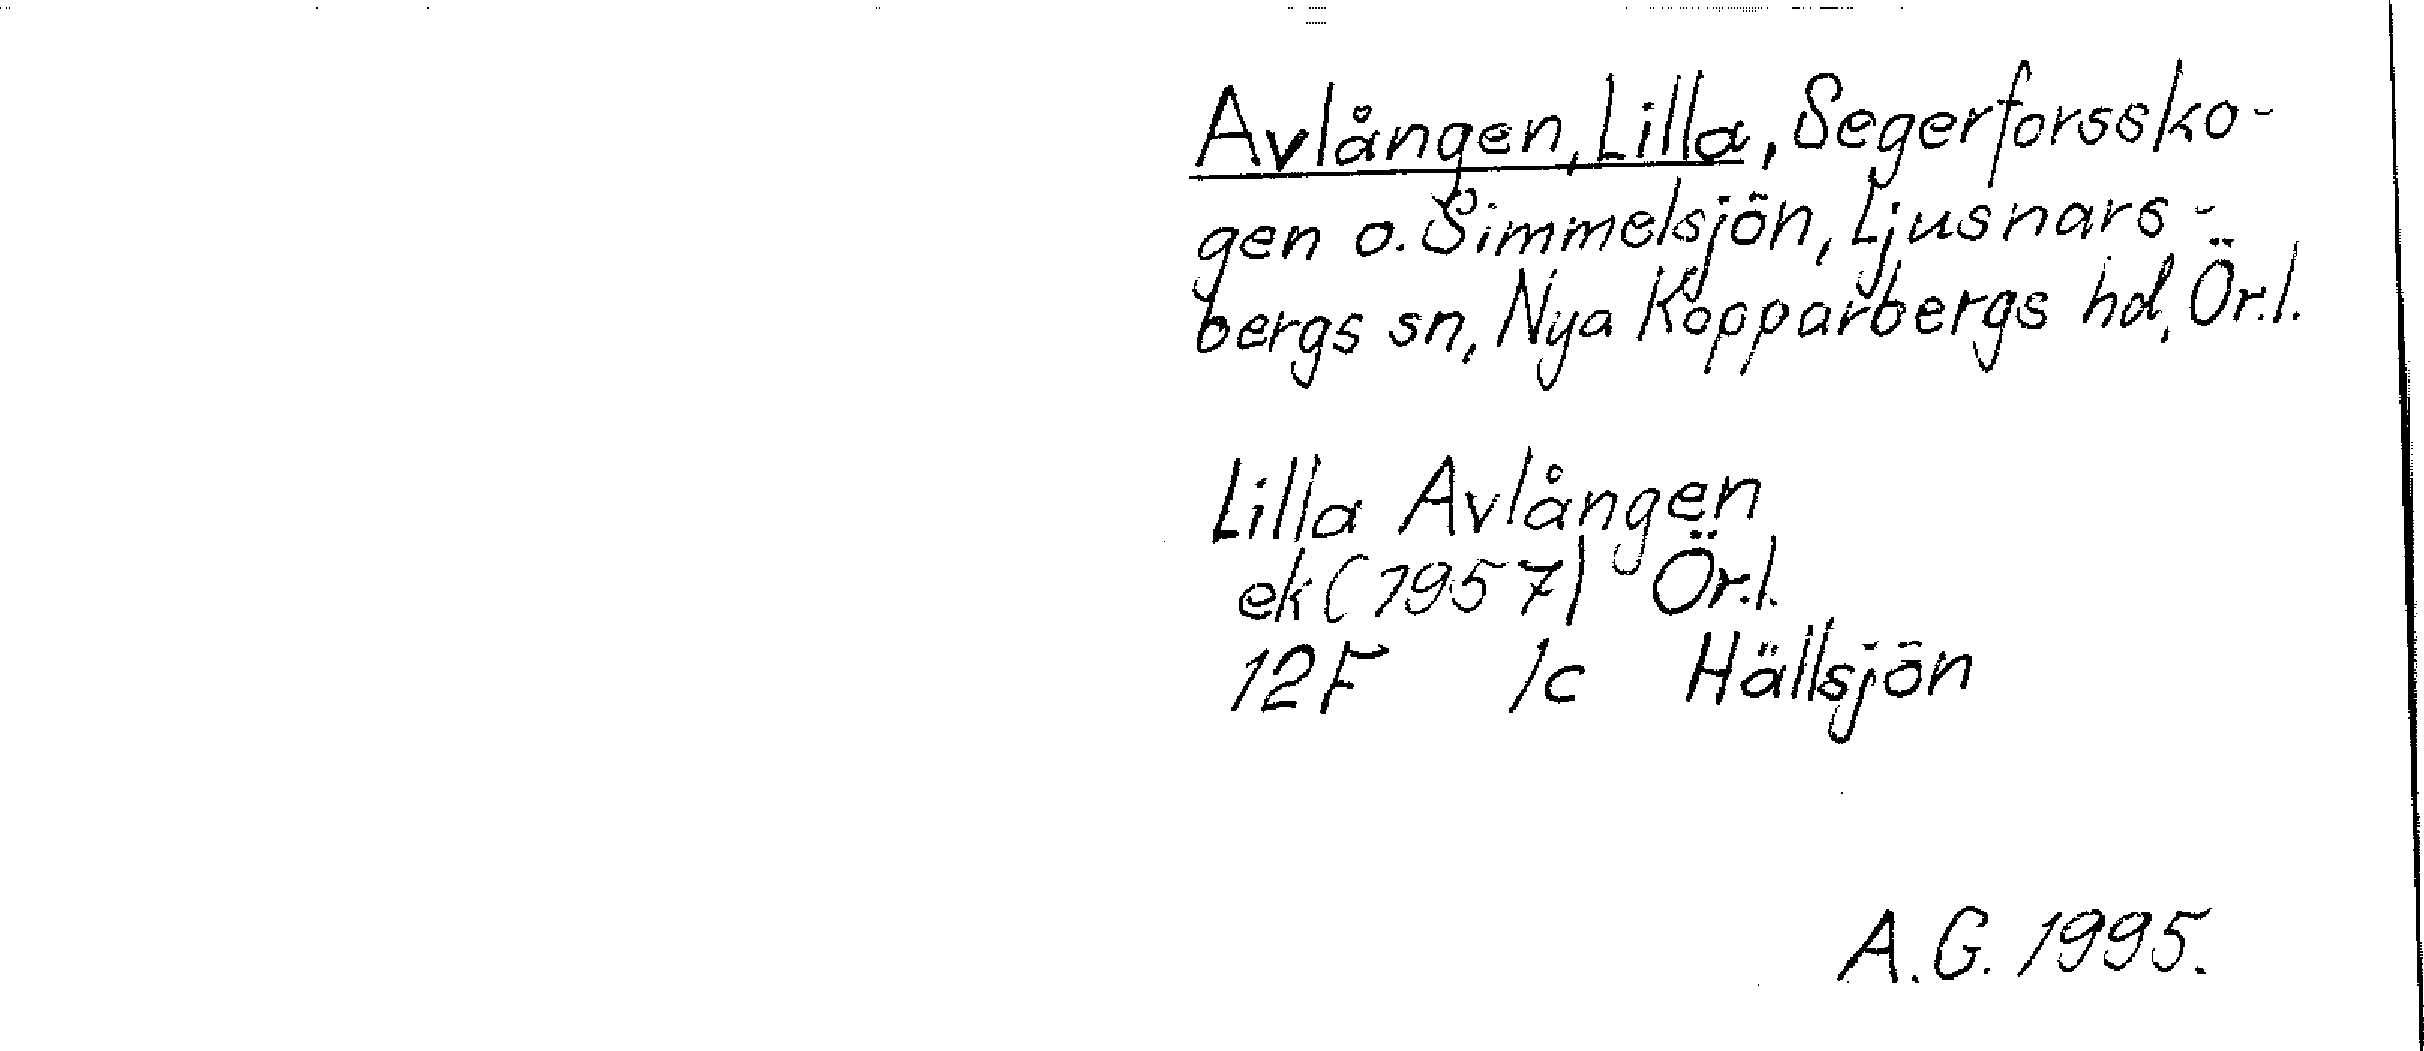 Avlången, Lilla, Segerforssko-
gen o. Simmelsjön, Ljusnars-
bergs sn, Nya Kopparbergs hd, Ör.l.
Lilla Avlången
ek (1957) Ör.l.
12F 1c Hällsjön
A.G. 1995.